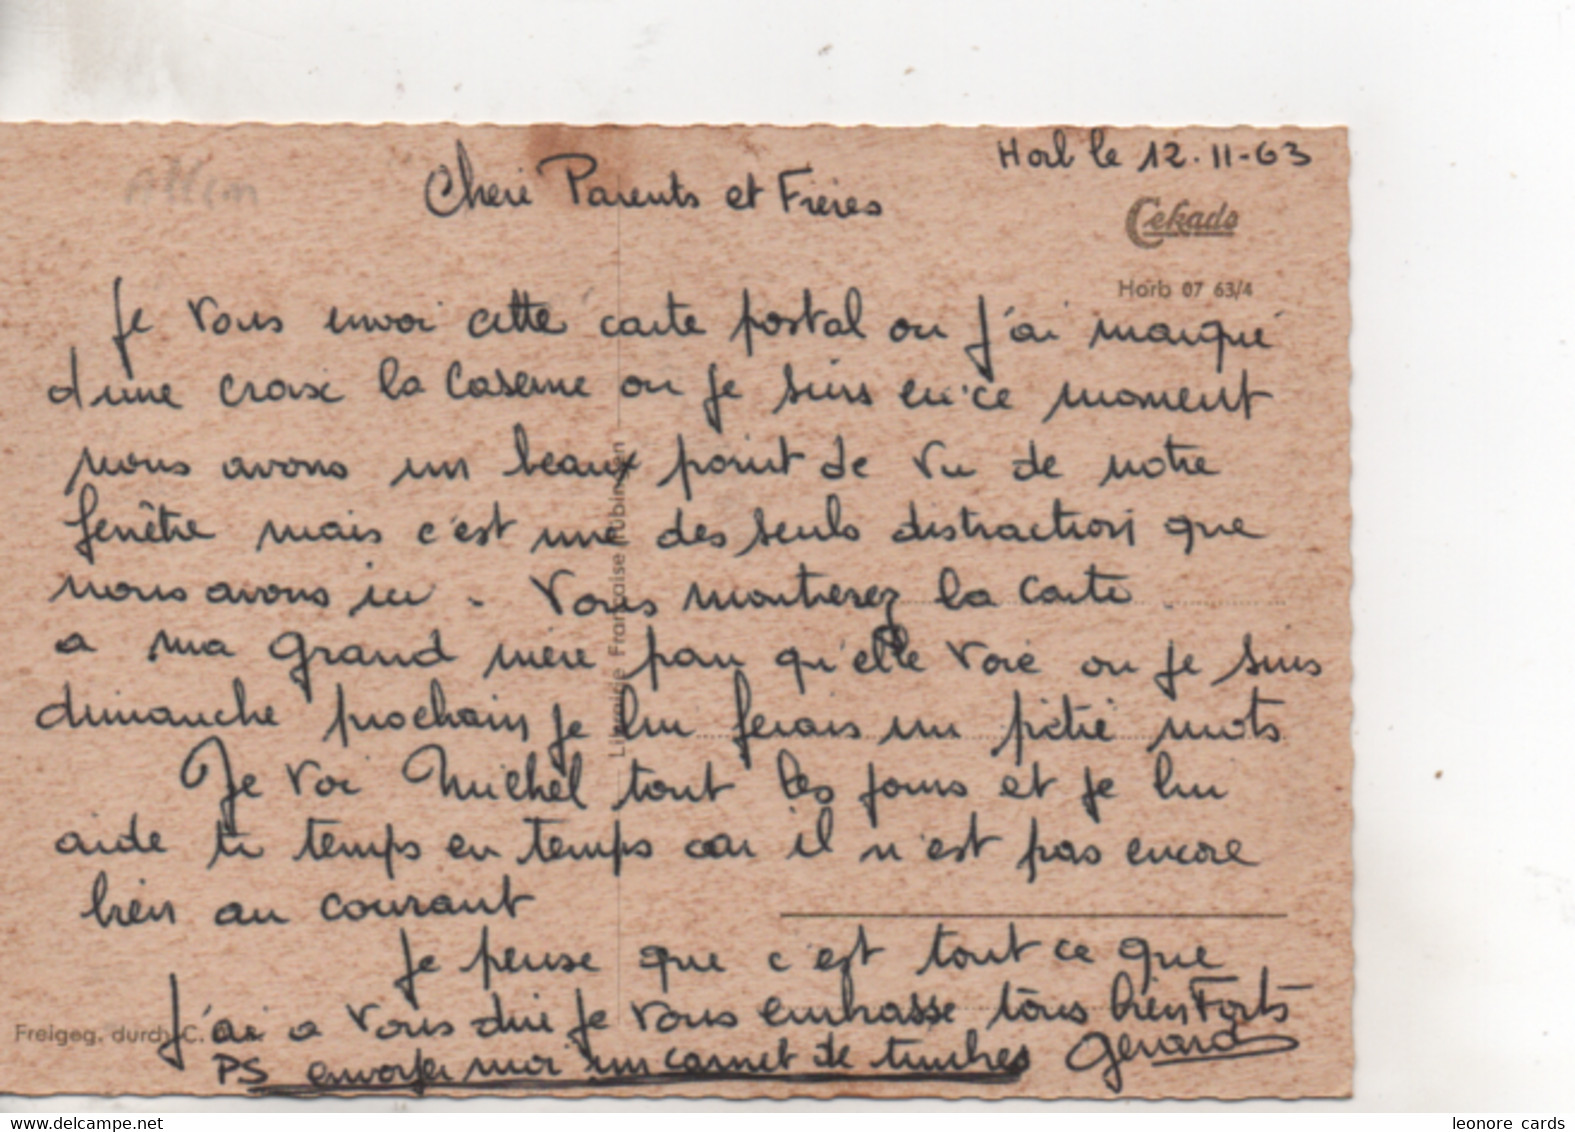 Horb le 12-11-63
Allem
Cheri Parents et Frères
Cekado
Horb 07 63/4
Je vous envoi cette carte postal ou j'ai marqué
d'une croix la caserne ou je suis en ce moment
nous avons un beaux point de vu de notre
fenêtre mais c'est une des seuls distraction que
nous avons ici - Vous montrerez la carte
a ma grand mère pour qu'elle voie ou je suis
dimanche prochain je lui ferais un petié mots
Je voi Michel tout les jours et je lui
aide de temps en temps car il n'est pas encore
bien au courant
Je pense que c'est tout ce que
j'ai a vous dire je vous embrasse tous bien Forts
Gerard
PS envoyer moi un carnet de timbres
Librairie Française Tübingen
Freigeg. durch C.
leonore cards